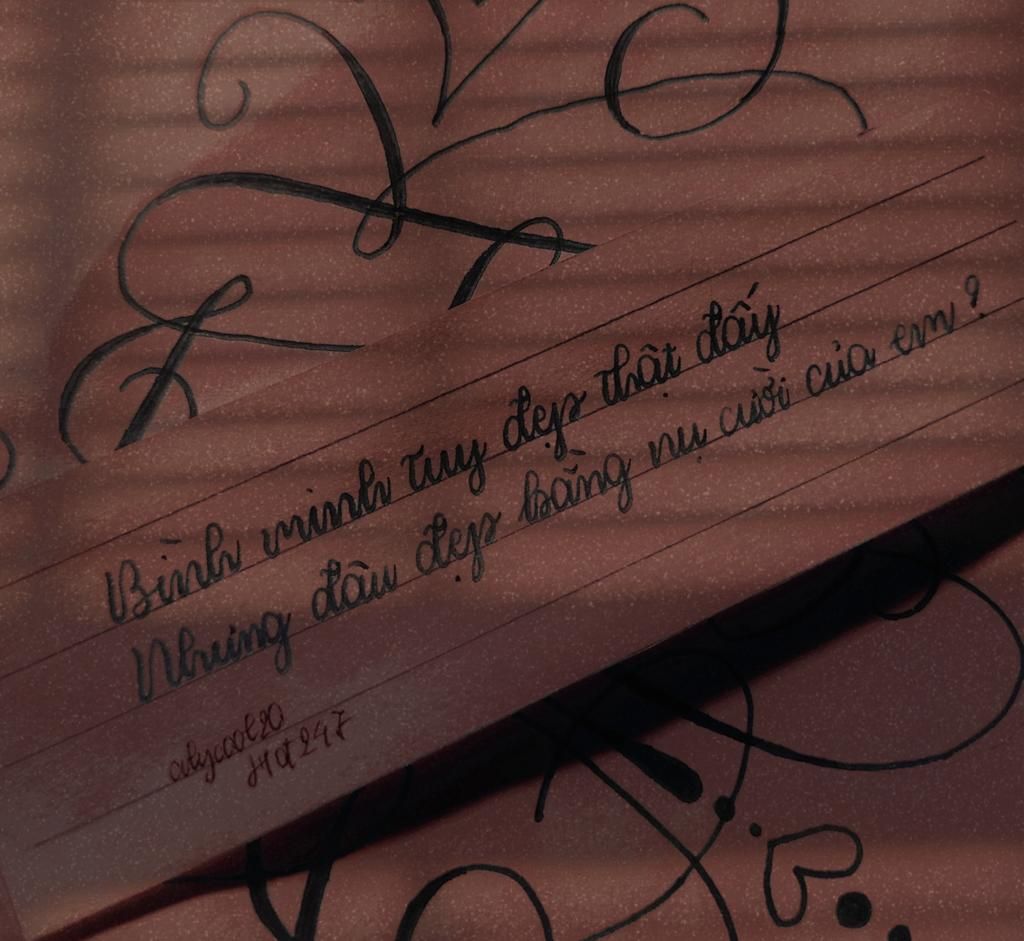 Bình minh tuy đẹp thật đấy
Nhưng đâu đẹp bằng nụ cười của em?
alycool20
Hq247